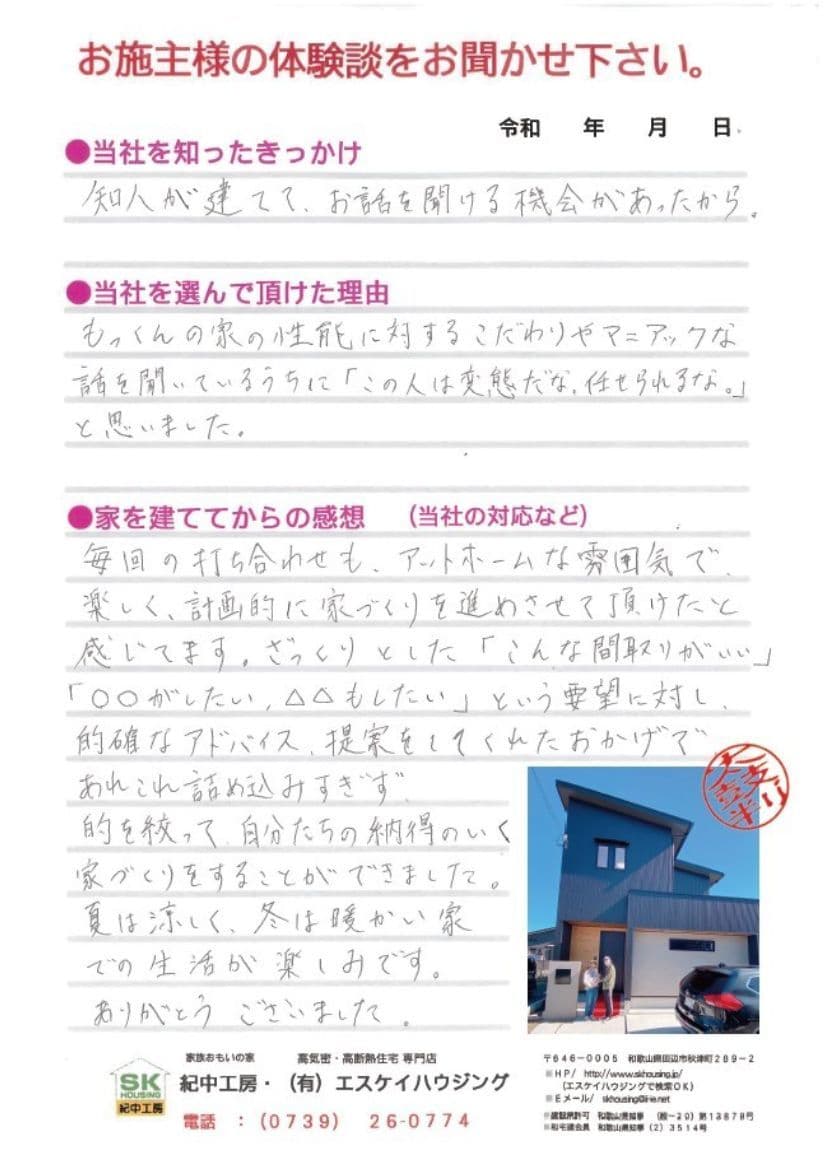 お施主様の体験談をお聞かせ下さい。
令和 年 月 日
●当社を知ったきっかけ
知人が建てて、お話を聞ける機会があったから。
●当社を選んで頂けた理由
もっくんの家の性能に対するこだわりやマニアックな
話を聞いているうちに「この人は変態だな。任せられるな。」
と思いました。
●家を建ててからの感想 (当社の対応など)
毎回の打ち合わせも、アットホームな雰囲気で、
楽しく、計画的に家づくりを進めさせて頂けたと
感じてます。ざっくりとした「こんな間取りがいい」
「○○がしたい、△△もしたい」という要望に対し、
的確なアドバイス、提案をしてくれたおかげで
あれこれ詰め込みすぎず、
的を絞って、自分たちの納得のいく
家づくりをすることができました。
夏は涼しく、冬は暖かい家
での生活が楽しみです。
ありがとうございました。
SK
HOUSING
紀中工房
家族おもいの家 高気密・高断熱住宅 専門店
紀中工房・(有)エスケイハウジング
電話 :(0739) 26-0774
〒646-0005 和歌山県田辺市秋津町289-2
■HP/ http://www.skhousing.jp/
(エスケイハウジングで検索OK)
■Eメール/ skhousing@i-e.net
■建設業許可 和歌山県知事 (般-20) 第13878号
■和宅建会員 和歌山県知事 (2) 3514号